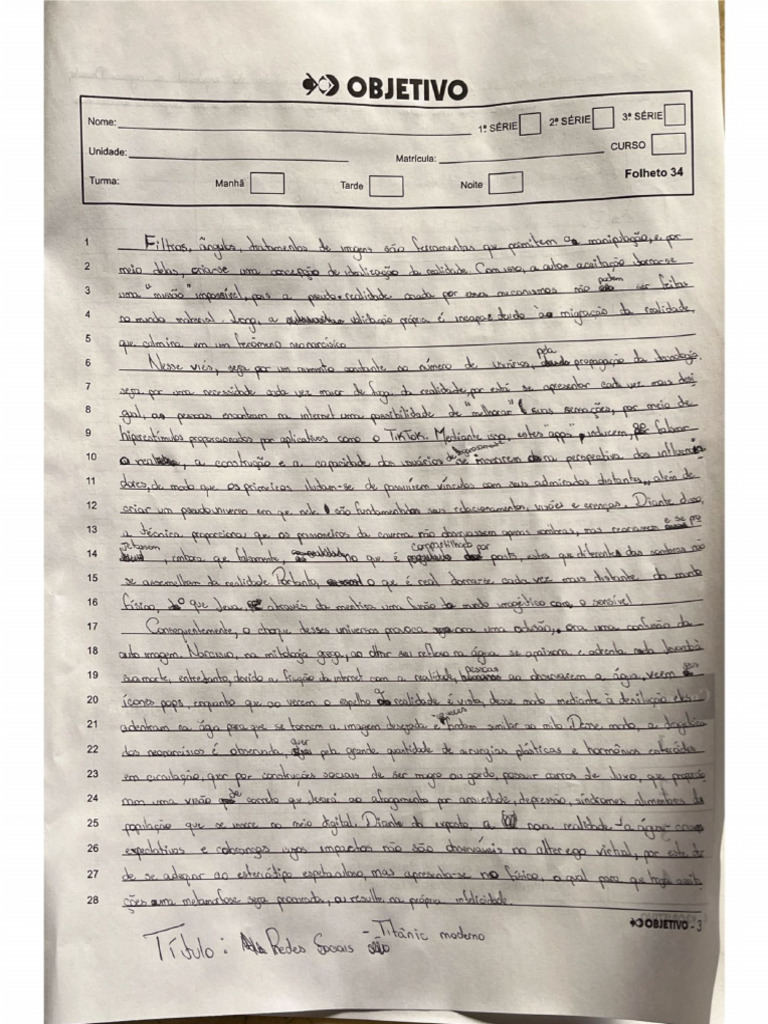 OBJETIVO
Nome:
1ª SÉRIE 2ª SÉRIE 3ª SÉRIE
Unidade: Matrícula: CURSO
Turma: Manhã Tarde Noite Folheto 34
1 Filtros, ângulos, tratamentos de imagens são ferramentas que permitem a manipulação, e por
2 meio delas, cria-se uma concepção de idealização da realidade. Com isso, a auto aceitação torna-se
3 uma "missão" impossível, pois a pseudo-realidade criada por esses mecanismos não podem ser feitas
4 no mundo material. Logo, a validação própria é incapaz devido à migração da realidade,
5 que culmina em um fenômeno neonarcísico
6 Nesse viés, seja por um aumento constante no número de usuários, pela propagação da tecnologia.
7 seja por uma necessidade cada vez maior de fuga da realidade, por está se apresentar cada vez mais desi
8 gual, as pessoas encontram na internet uma possibilidade de "melhorar" suas sensações, por meio de
9 hiperestímulos proporcionados por aplicativos como o TikTok. Mediante isso, estes "apps" induzem,
10 a construção e a capacidade dos usuários se na perspectiva dos influencia
11 dores, de modo que os primeiros iludam-se de possuírem vínculos com seus admirados distantes, além de
12 criar um pseudouniverso em que nele são fundamentados seus relacionamentos, visões e crenças. Diante disso,
13 a técnica proporciona que os prisioneiros da caverna não enxergassem apenas sombras, mas e se pro
14 jetassem, embora que falsamente, no que é compartilhado por posts, estes que diferentes das sombras não
15 se assemelham da realidade. Portanto, o que é real torna-se cada vez mais distante do mundo
16 físico, o que leva através da mentira uma fusão do mundo imagético com o sensível
17 Consequentemente, o choque desses universos provoca ora uma ora uma confusão da
18 auto imagem. Narciso, na mitologia grega, ao olhar seu reflexo na água se apaixona e adentra nela
19 entretanto, devido a fricção da internet com a realidade, pessoas ao observarem a água, veem
20 ícones pops, enquanto que ao verem o espelho a realidade é vista, desse modo mediante à desilusão eles
21 adentram na água para que se tornem a imagem desejada e seus findam similar ao mito. Desse modo, a
22 dos neonarcisos é observada, quer pela grande quantidade de cirurgias plásticas e hormônios
23 em circulação, quer por construções sociais de ser magro ou gordo, possuir carros de luxo, que
24 uma visão de correto que levará ao afogamento por ansiedade, depressão, síndromes alimentares da
25 população que se insere no meio digital. Diante do exposto, a nova realidade "a água"
26 expectativas e cobranças cujos impactos não são observáveis no alter ego virtual, por este
27 de se adequar ao estereótipo espetaculoso, mas apresenta-se no físico, o qual para que haja
28 ções uma metamorfose seja procurada, ou resulte na própria infelicidade
OBJETIVO - 3
Título: Redes Sociais - Titânic moderno